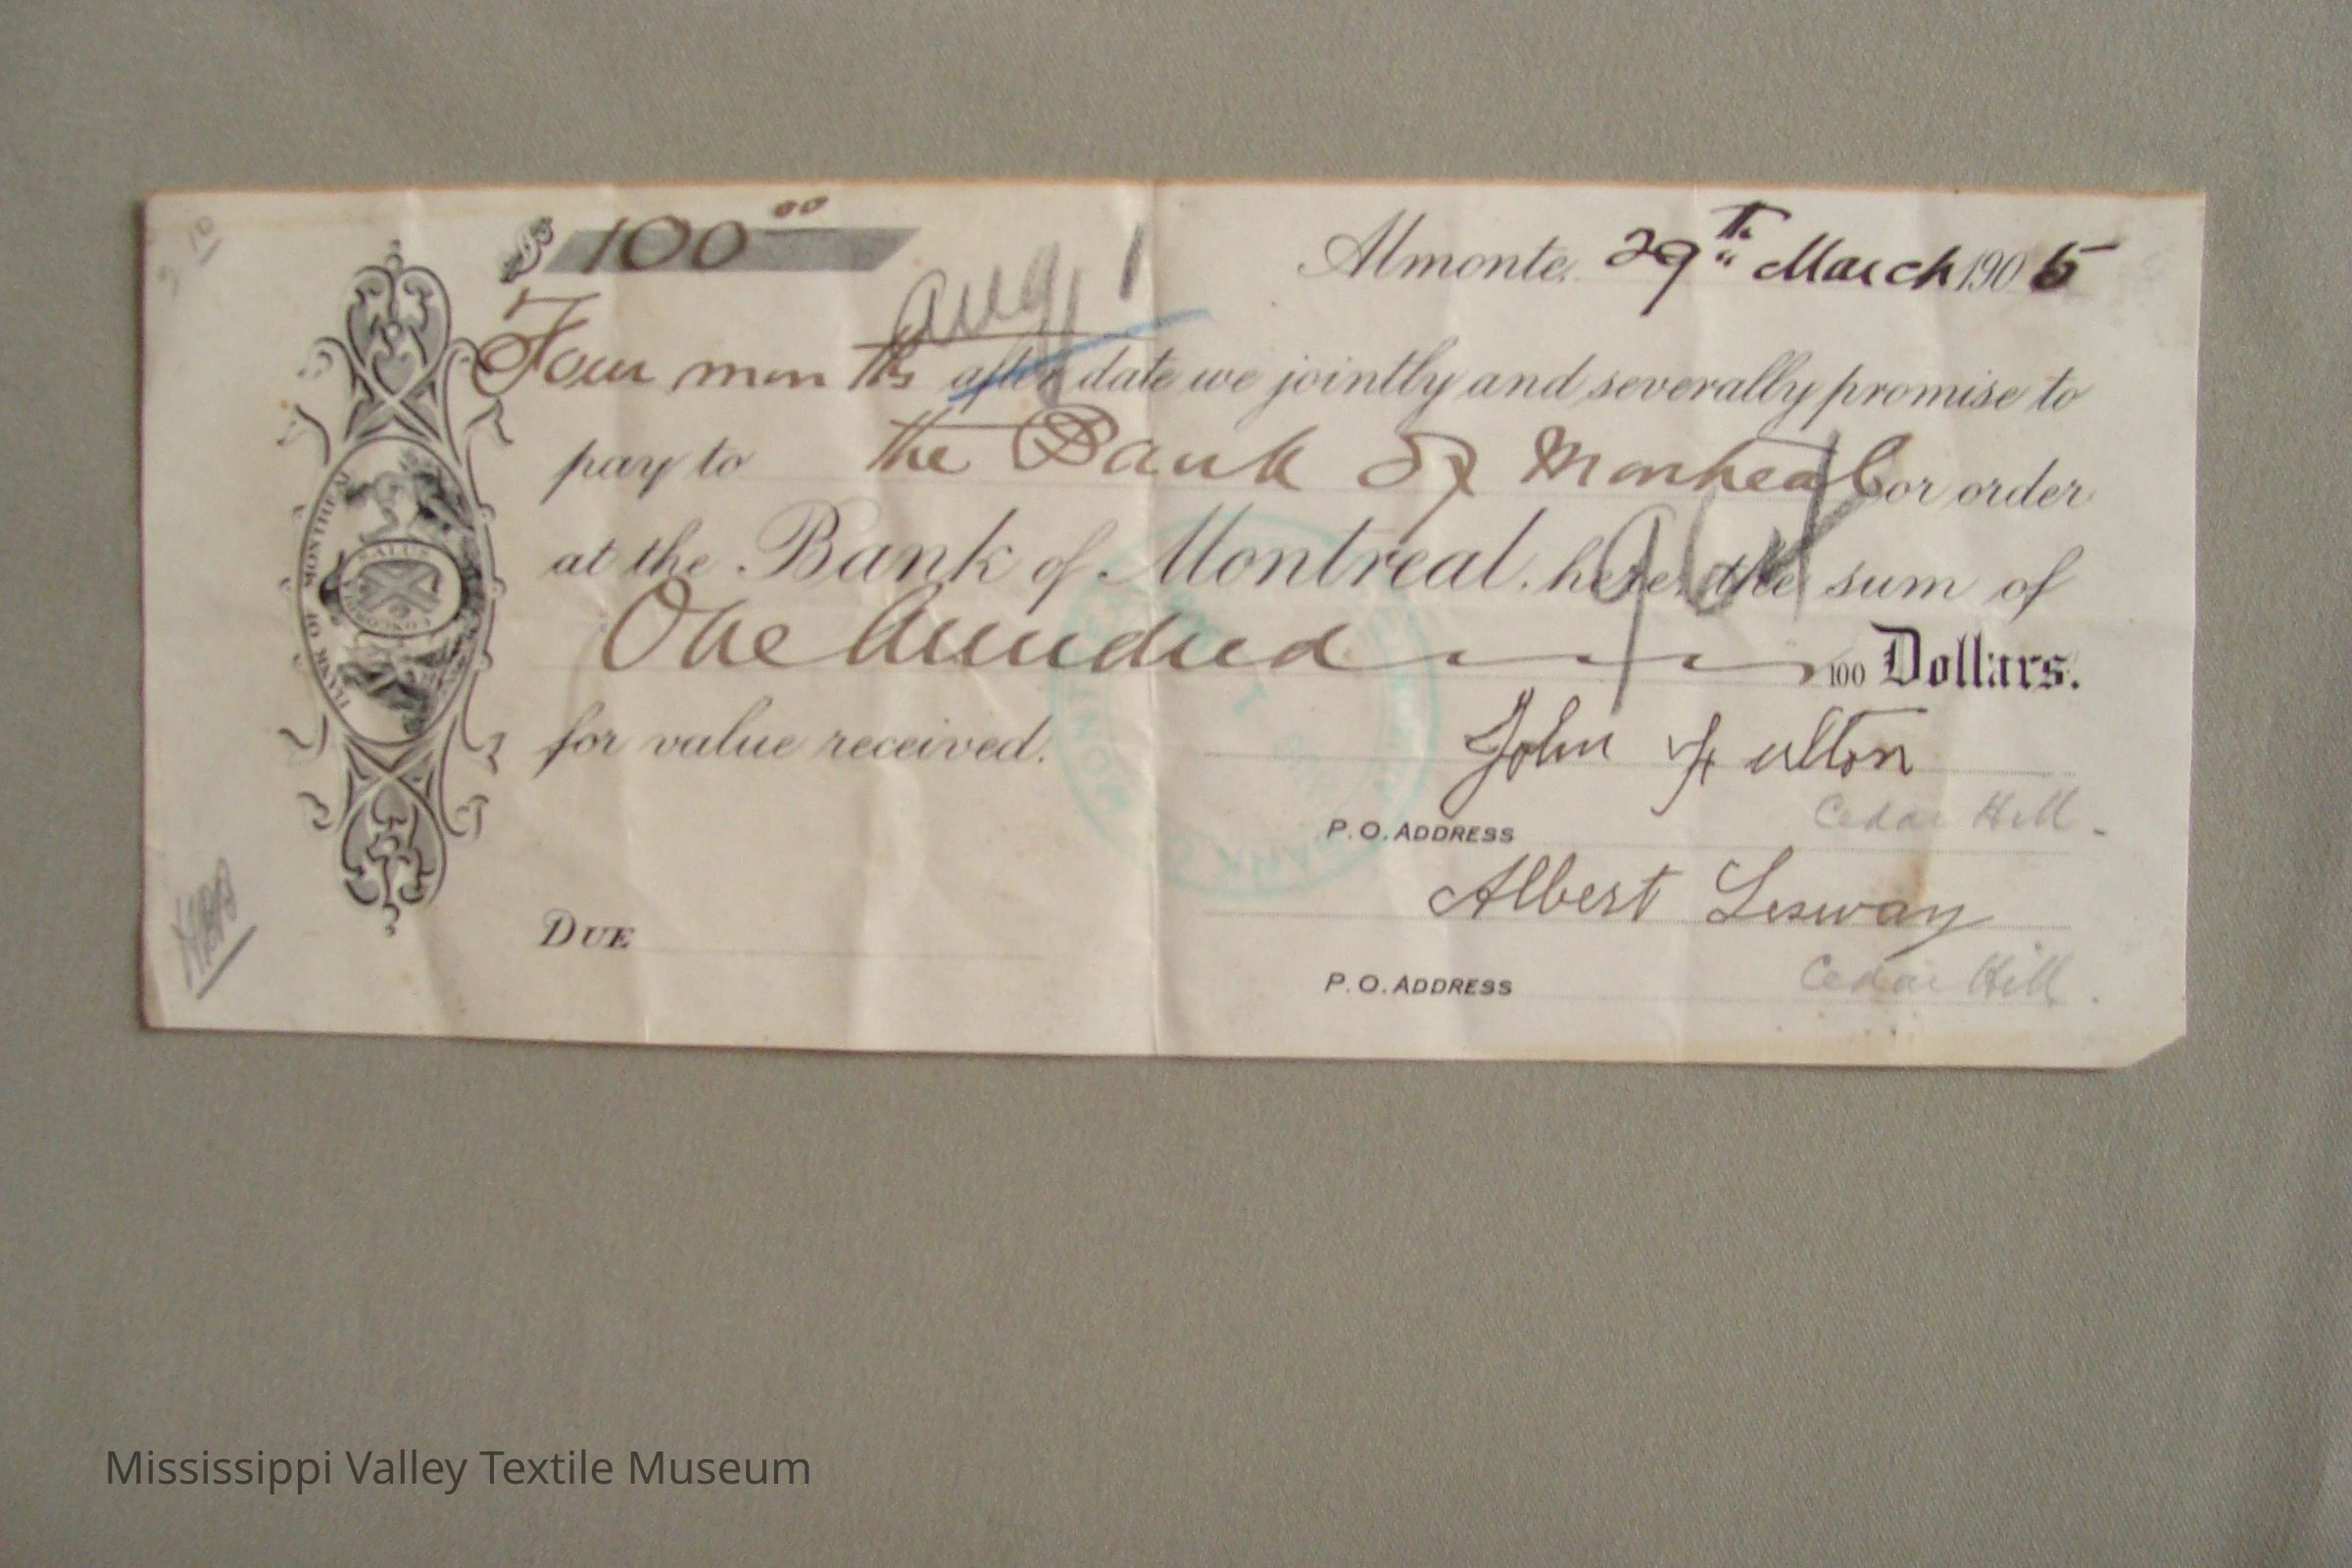 $ 100 00
Aug 1
Almonte. 29th March 1905
Four months after date we jointly and severally promise to
pay to the Bank of Montreal or order
at the Bank of Montreal. here, the sum of
One hundred 100 Dollars.
for value received.
John Fulton
P.O. ADDRESS Cedar Hill.
Albert Lesway
DUE
P.O. ADDRESS Cedar Hill.
BANK OF MONTREAL
Mississippi Valley Textile Museum